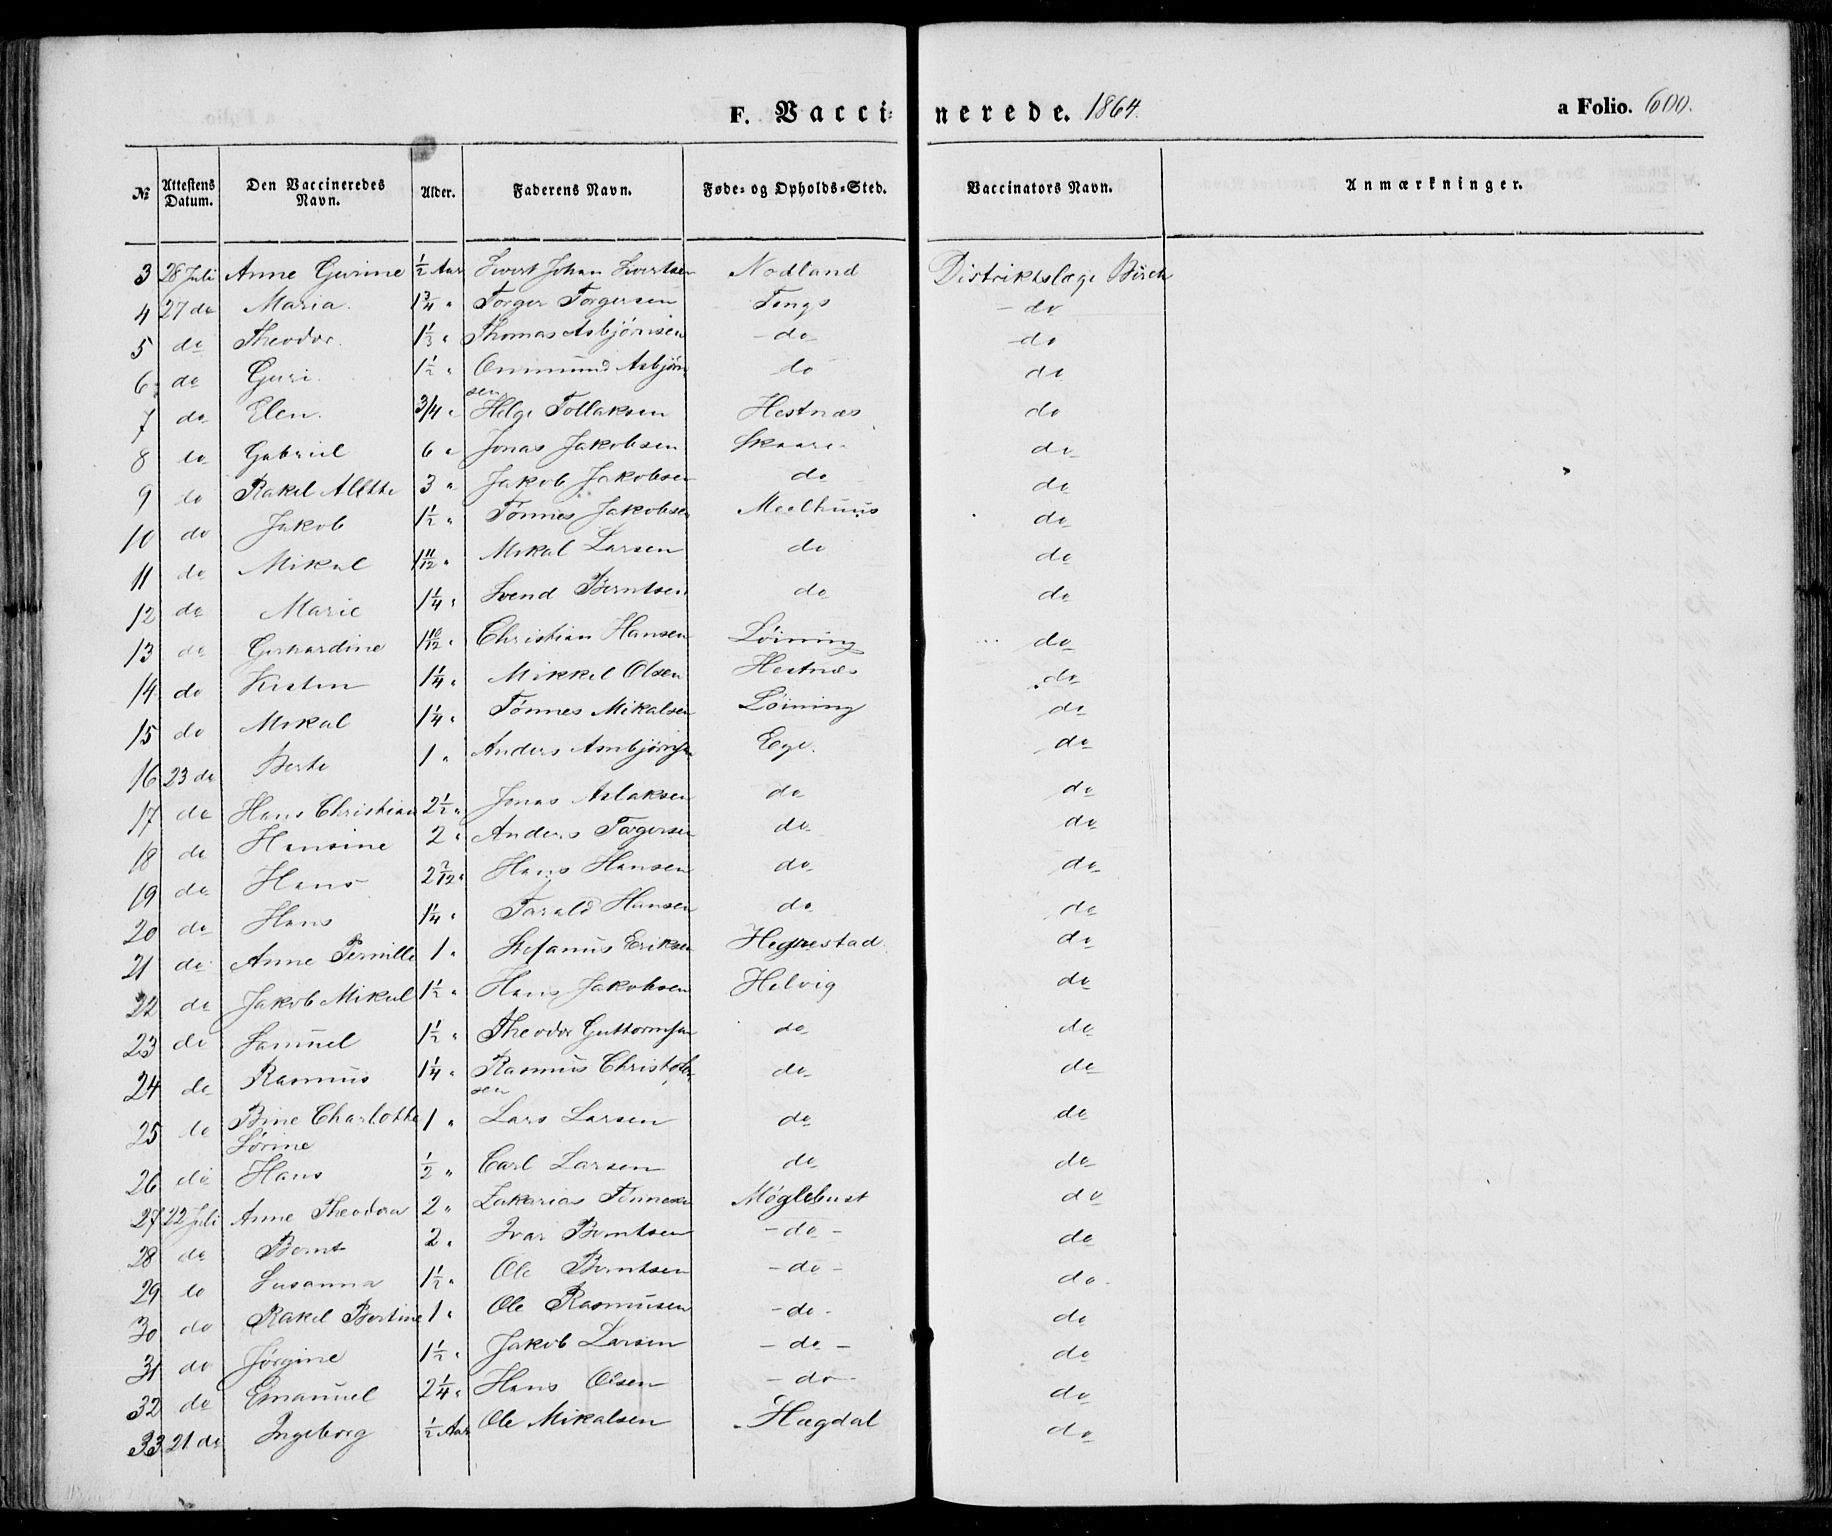 F. Vaccinerede. 1864. a Folio. 600.
№ Attestens Datum. Den Vaccineredes Navn. Alder. Faderens Navn. Føde- og Opholds-Sted. Vaccinators Navn. Anmærkninger.
3 28 Juli Anne Gurine ½ Aar Sivert Johan Sivertsen Nodland Distriktslæge Birch
4 27 do Maria. 1¾ " Torger Torgersen Tengs - do
5 do Theodor. 1⅓ " Thomas Asbjørnsen - do - do
6 do Guri. 1½ " Ommund Asbjørnsen do do
7 do Elen. 3/4 " Helge Tollaksen Hestnæs do
8 do Gabriel 6 " Jonas Jakobsen Skaara do
9 do Rakel Alette 3 " Jakob Jakobsen do do
10 do Jakob 1½ " Tønnes Jakobsen Meelhuus do
11 do Mikal 1 11/12 " Mikal Larsen do do
12 do Marie 1¼ " Svend Berntsen do do
13 do Gerhardine 1 10/12 " Christian Hansen Løining do
14 do Kisten 1¼ " Mikkel Olsen Hestnæs do
15 do Mikal 1¼ " Tønnes Mikalsen Løining do
16 23 do Berte 1 " Anders Asnbjørnsen Ege. do
17 do Hans Christian 2½ " Jonas Aslaksen do do
18 do Hansine 2 " Anders Torgersen do do
19 do Hans 2 7/12 " Hans Hansen do do
20 do Hans 1¼ " Tarald Hansen do do
21 do Anne Pernille 1 " Stefanus Eriksen Hegrestad do
22 do Jakob Mikal 1½ " Hans Jakobsen Helvig do
23 do Samuel 1½ " Theodor Guttormsen do do
24 do Rasmus 1¼ " Rasmus Christofersen do do
25 do Bine Charlotte 1 " Lars Larsen do do
Sørine
26 do Hans ½ " Carl Larsen do do
27 22 Juli Anne Theodora 2 " Zakarias Tønnesen Møglebust do
28 do Bernt 2 " Ivar Berntsen - do - do
29 do Susanna 1½ " Ole Berntsen - do - do
30 do Rakel Bertine 1 " Ole Rasmusen - do - do
31 do Jørgine 1½ " Jakob Larsen - do - do
32 do Emanuel 2¼ " Hans Olsen - do - do
33 21 do Ingeborg ½ Aar Ole Mikalsen Hægdal do